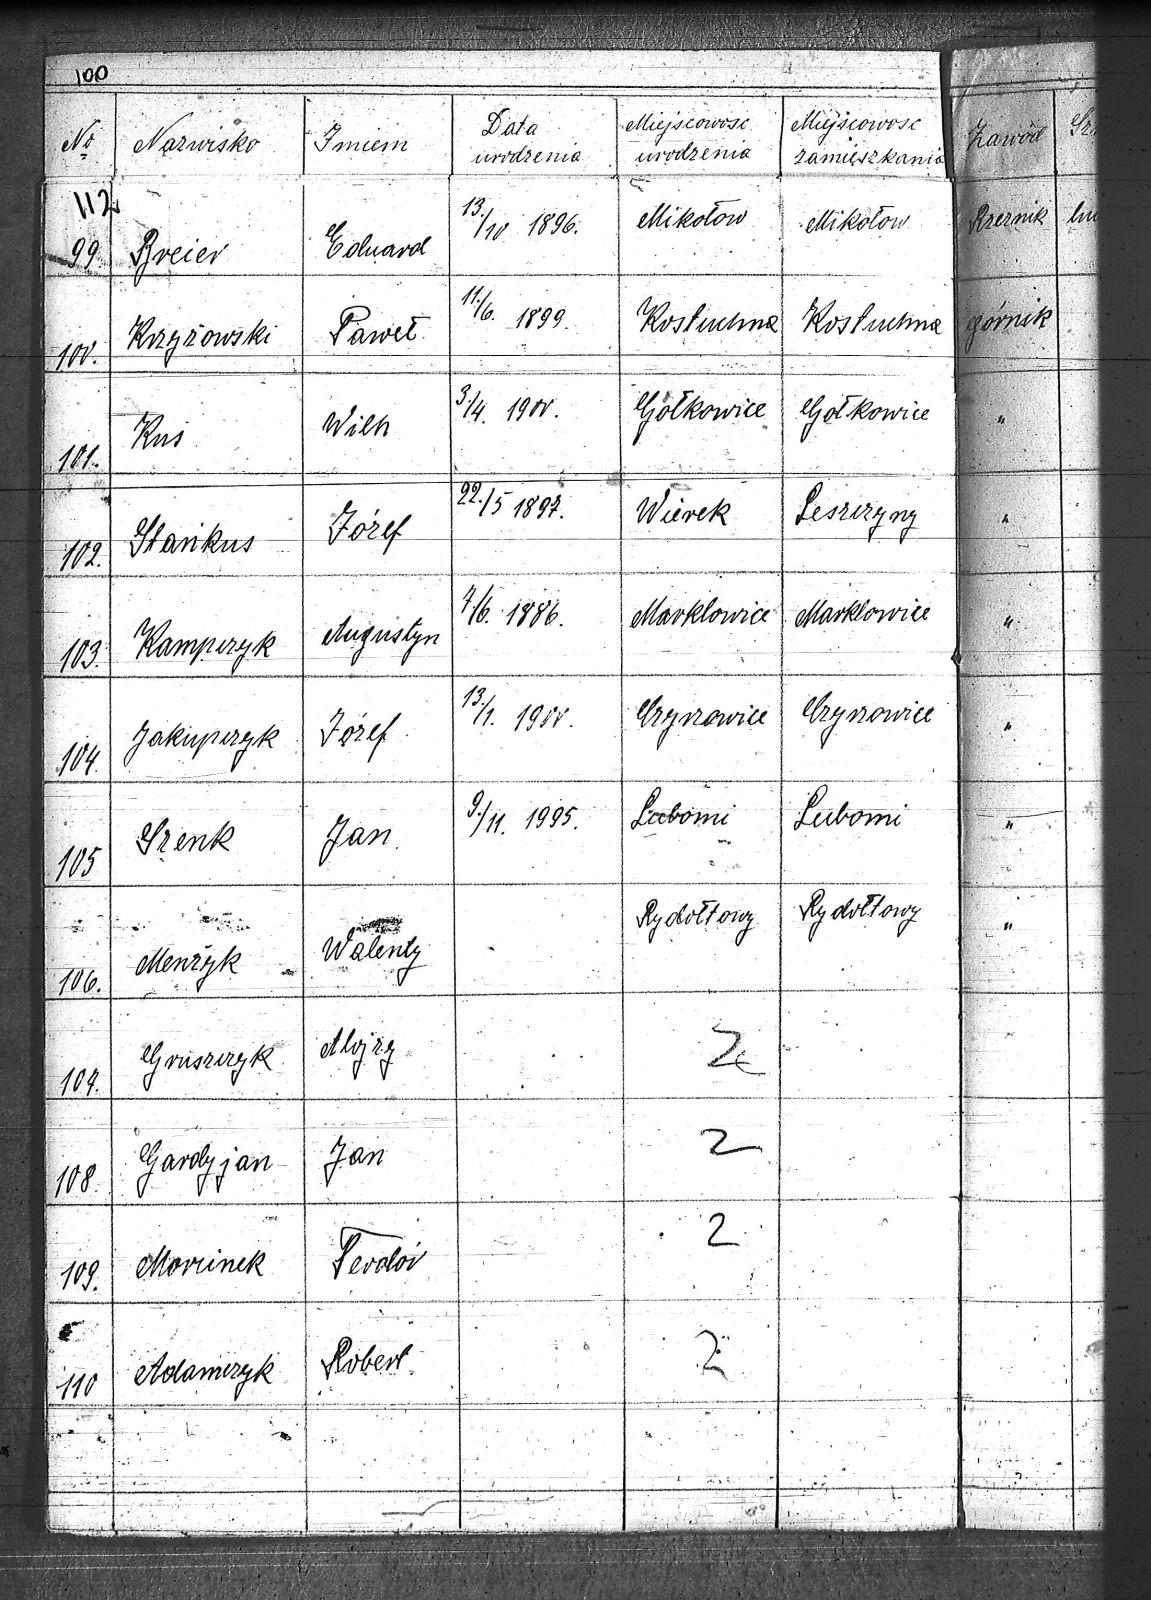 100
No Nazwisko Imiem Data urodzenia Miejscowosc urodzenia Miejscowosc zamieszkania Zawód
112
99 Breier Eduard 13./10 1896. Mikołow Mikołow Rzeznik
100. Krzyżowski Paweł 11./6. 1899. Kostuchna Kostuchna górnik
101. Kus Wilh 3./4. 1900. Gołkowice Gołkowice "
102. Stańkus Józef 22./5 1897. Wierek Leszczyny "
103. Kampczyk Augustyn 7./6. 1886. Marklowice Marklowice "
104. Jakupczyk Józef 13./1. 1900. Czyzowice Czyzowice "
105 Szenk Jan 9./11. 1995. Lubomi Lubomi "
106. Menżyk Walenty Rydołtowy Rydołtowy "
107. Gruszczyk Alojzy 2
108. Gardyjan Jan 2
109. Morcinek Teodór 2
110 Adamczyk Robert 2